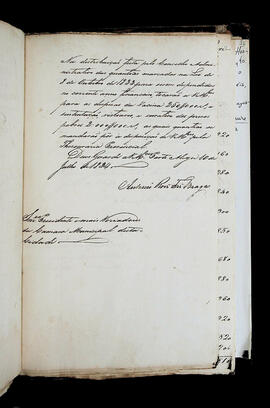 Na distribuição feita pelo Conselho Admi-
nistrativo das quantias marcadas na Lei de
8 de Outubro de 1833 para serem despendidas
no corrente anno financeiro tocarão a V.Mces
para as despezas da Vacina 240$000 rs, e
curativo dos presos
pobres 2.000$000 rs, as quaes quantias se
mandarão pôr a disposição de V.Mces pela
Thesouraria Provincial.
Deos Guarde a V.Mces Porto Alegre 10 de
Julho de 1834.
Antonio Roiz Fez Braga
Snres Presidente e mais Vereadores
da Camara Municipal desta
Cidade
920
680
980
900
680
980
960
920
520